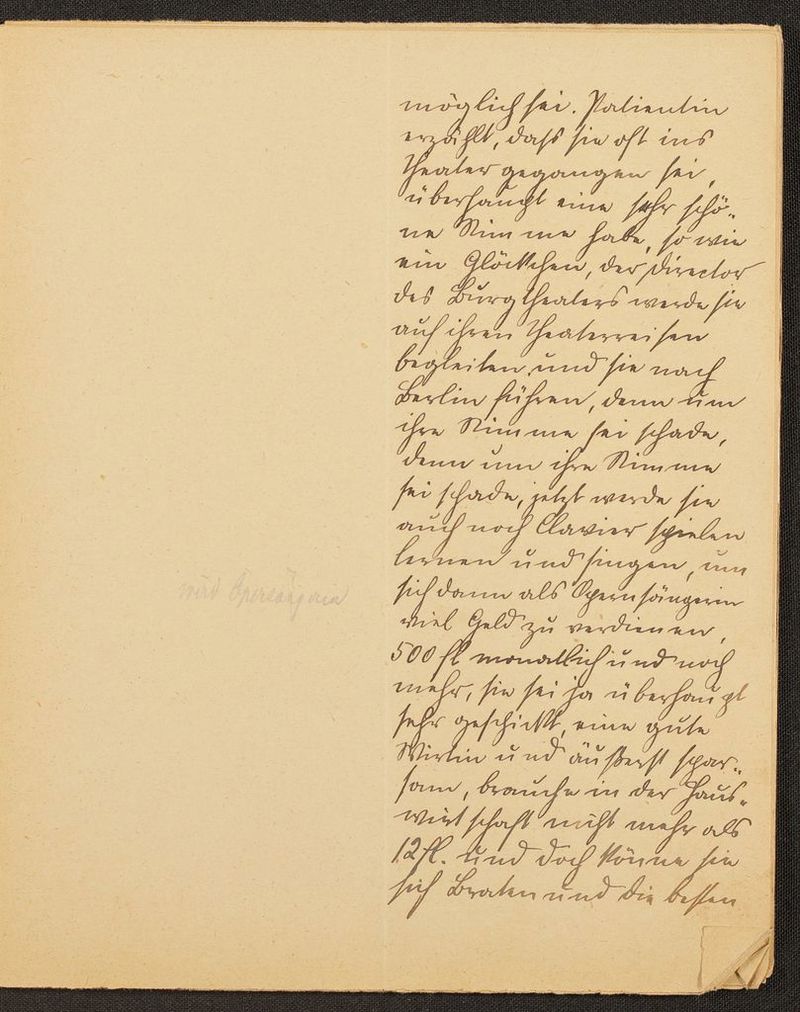 möglich sei. Patientin
erzählt, dass sie oft ins
Theater gegangen sei,
überhaupt eine sehr schö„
ne Stimme habe, so wie
ein Glöckchen, der Director
des Burgtheaters werde sie
auf ihren Theaterreisen
begleiten und sie nach
Berlin führen, denn um
ihre Stimme sei schade,
denn um ihre Stimme
sei schade, jetzt werde sie
auch noch Clavier spielen
lernen und singen, um
wird Opersängerin
sich dann als Opernsängerin
viel Geld zu verdienen,
500 fl monatlich und noch
mehr, sie sei ja überhaupt
sehr geschickt, eine gute
Wirtin und äußerst spar„
sam, brauche in der Haus„
wirtschaft nicht mehr als
12 fl. und doch könne sie
sich Braten und die besten